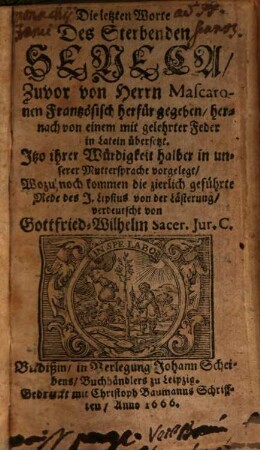 Die letzten Worte
Des Sterbenden
SENECA/
Zuvor von Herrn Mascaro-
nen Frantzösisch herfür gegeben/ her-
nach von einem mit gelehrter Feder
in Latein übersetzt.
Itzo ihrer Würdigkeit halber in un-
serer Muttersprache vorgelegt/
Wozu noch kommen die zierlich geführte
Rede des J. Lipsius von der Lästerung/
verdeutscht von
Gottfried-Wilhelm Sacer. Jur. C.
IN SPE LABOR
Budißin/ in Verlegung Johann Schei-
bens/ Buchhändlers zu Leipzig.
Gedruckt mit Christoph Baumanns Schriff-
ten/ Anno 1666.